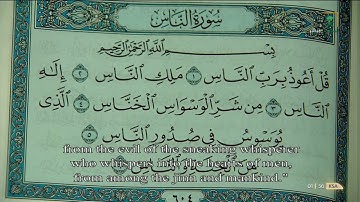 سُورَةُ النَّاسِ
بِسْمِ اللَّهِ الرَّحْمَٰنِ الرَّحِيمِ
قُلْ أَعُوذُ بِرَبِّ النَّاسِ ١ مَلِكِ النَّاسِ ٢ إِلَٰهِ
النَّاسِ ٣ مِن شَرِّ الْوَسْوَاسِ الْخَنَّاسِ ٤ الَّذِي
يُوَسْوِسُ فِي صُدُورِ النَّاسِ ٥
from the evil of the sneaking whisperer
who whispers into the hearts of men,
from among the jinn and mankind."
٦٠٤
KSA